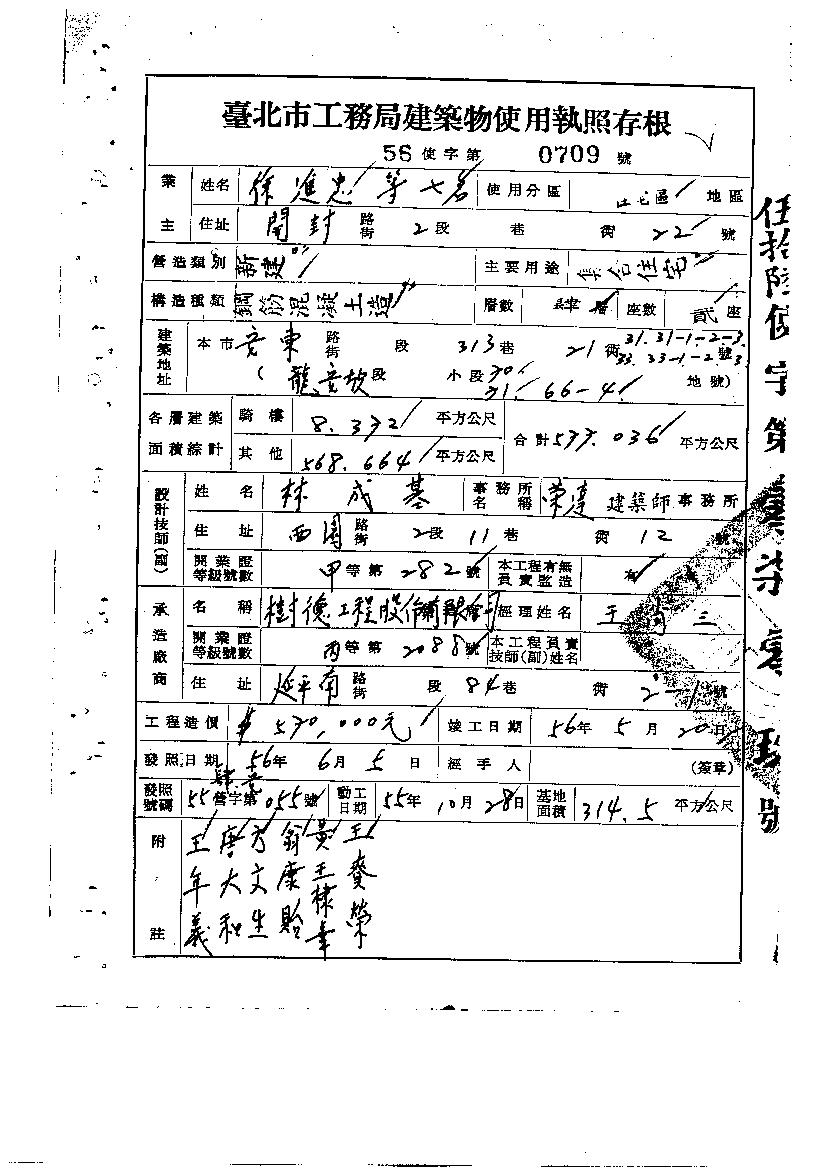 臺北市工務局建築物使用執照存根
56 使字第 0709 號
業主 姓名 徐進忠等七名 使用分區 住宅區 地區
住址 開封 路街 2 段 巷 衖 22 號
營造類別 新建 主要用途 集合住宅
構造種類 鋼筋混凝土造 層數 肆層 座數 貳座
建築地址 本市 安東 路街 段 313 巷 21 衖 31.31-1-2-3. 33.33-1-2.3 號
( 龍安坡 段 小段 66-4. 地號)
各層建築面積綜計 騎樓 8.372 平方公尺 合計 577.036 平方公尺
其他 568.664 平方公尺
設計技師(副) 姓名 林成基 事務所名稱 建築師事務所
住址 西園 路街 2 段 11 巷 衖 12 號
開業證等級號數 甲等第 282 號 本工程有無負責監造 有
承造廠商 名稱 樹德工程股份有限公司 經理姓名 王 三
開業證等級號數 丙等第 2088 號 本工程負責技師(副)姓名
住址 延平南 路街 段 84 巷 衖 2-1 號
工程造價 $570,000元 竣工日期 56年 5月 20日
發照日期 56年 6月 5日 經手人 (簽章)
發照號碼 55營字第 055 號 動工日期 55年 10月 28日 基地面積 314.5 平方公尺
附註 王年義 唐大和 方文生 翁康貽 吳王棣華 王賡榮
伍拾陸使字第 柒零玖號